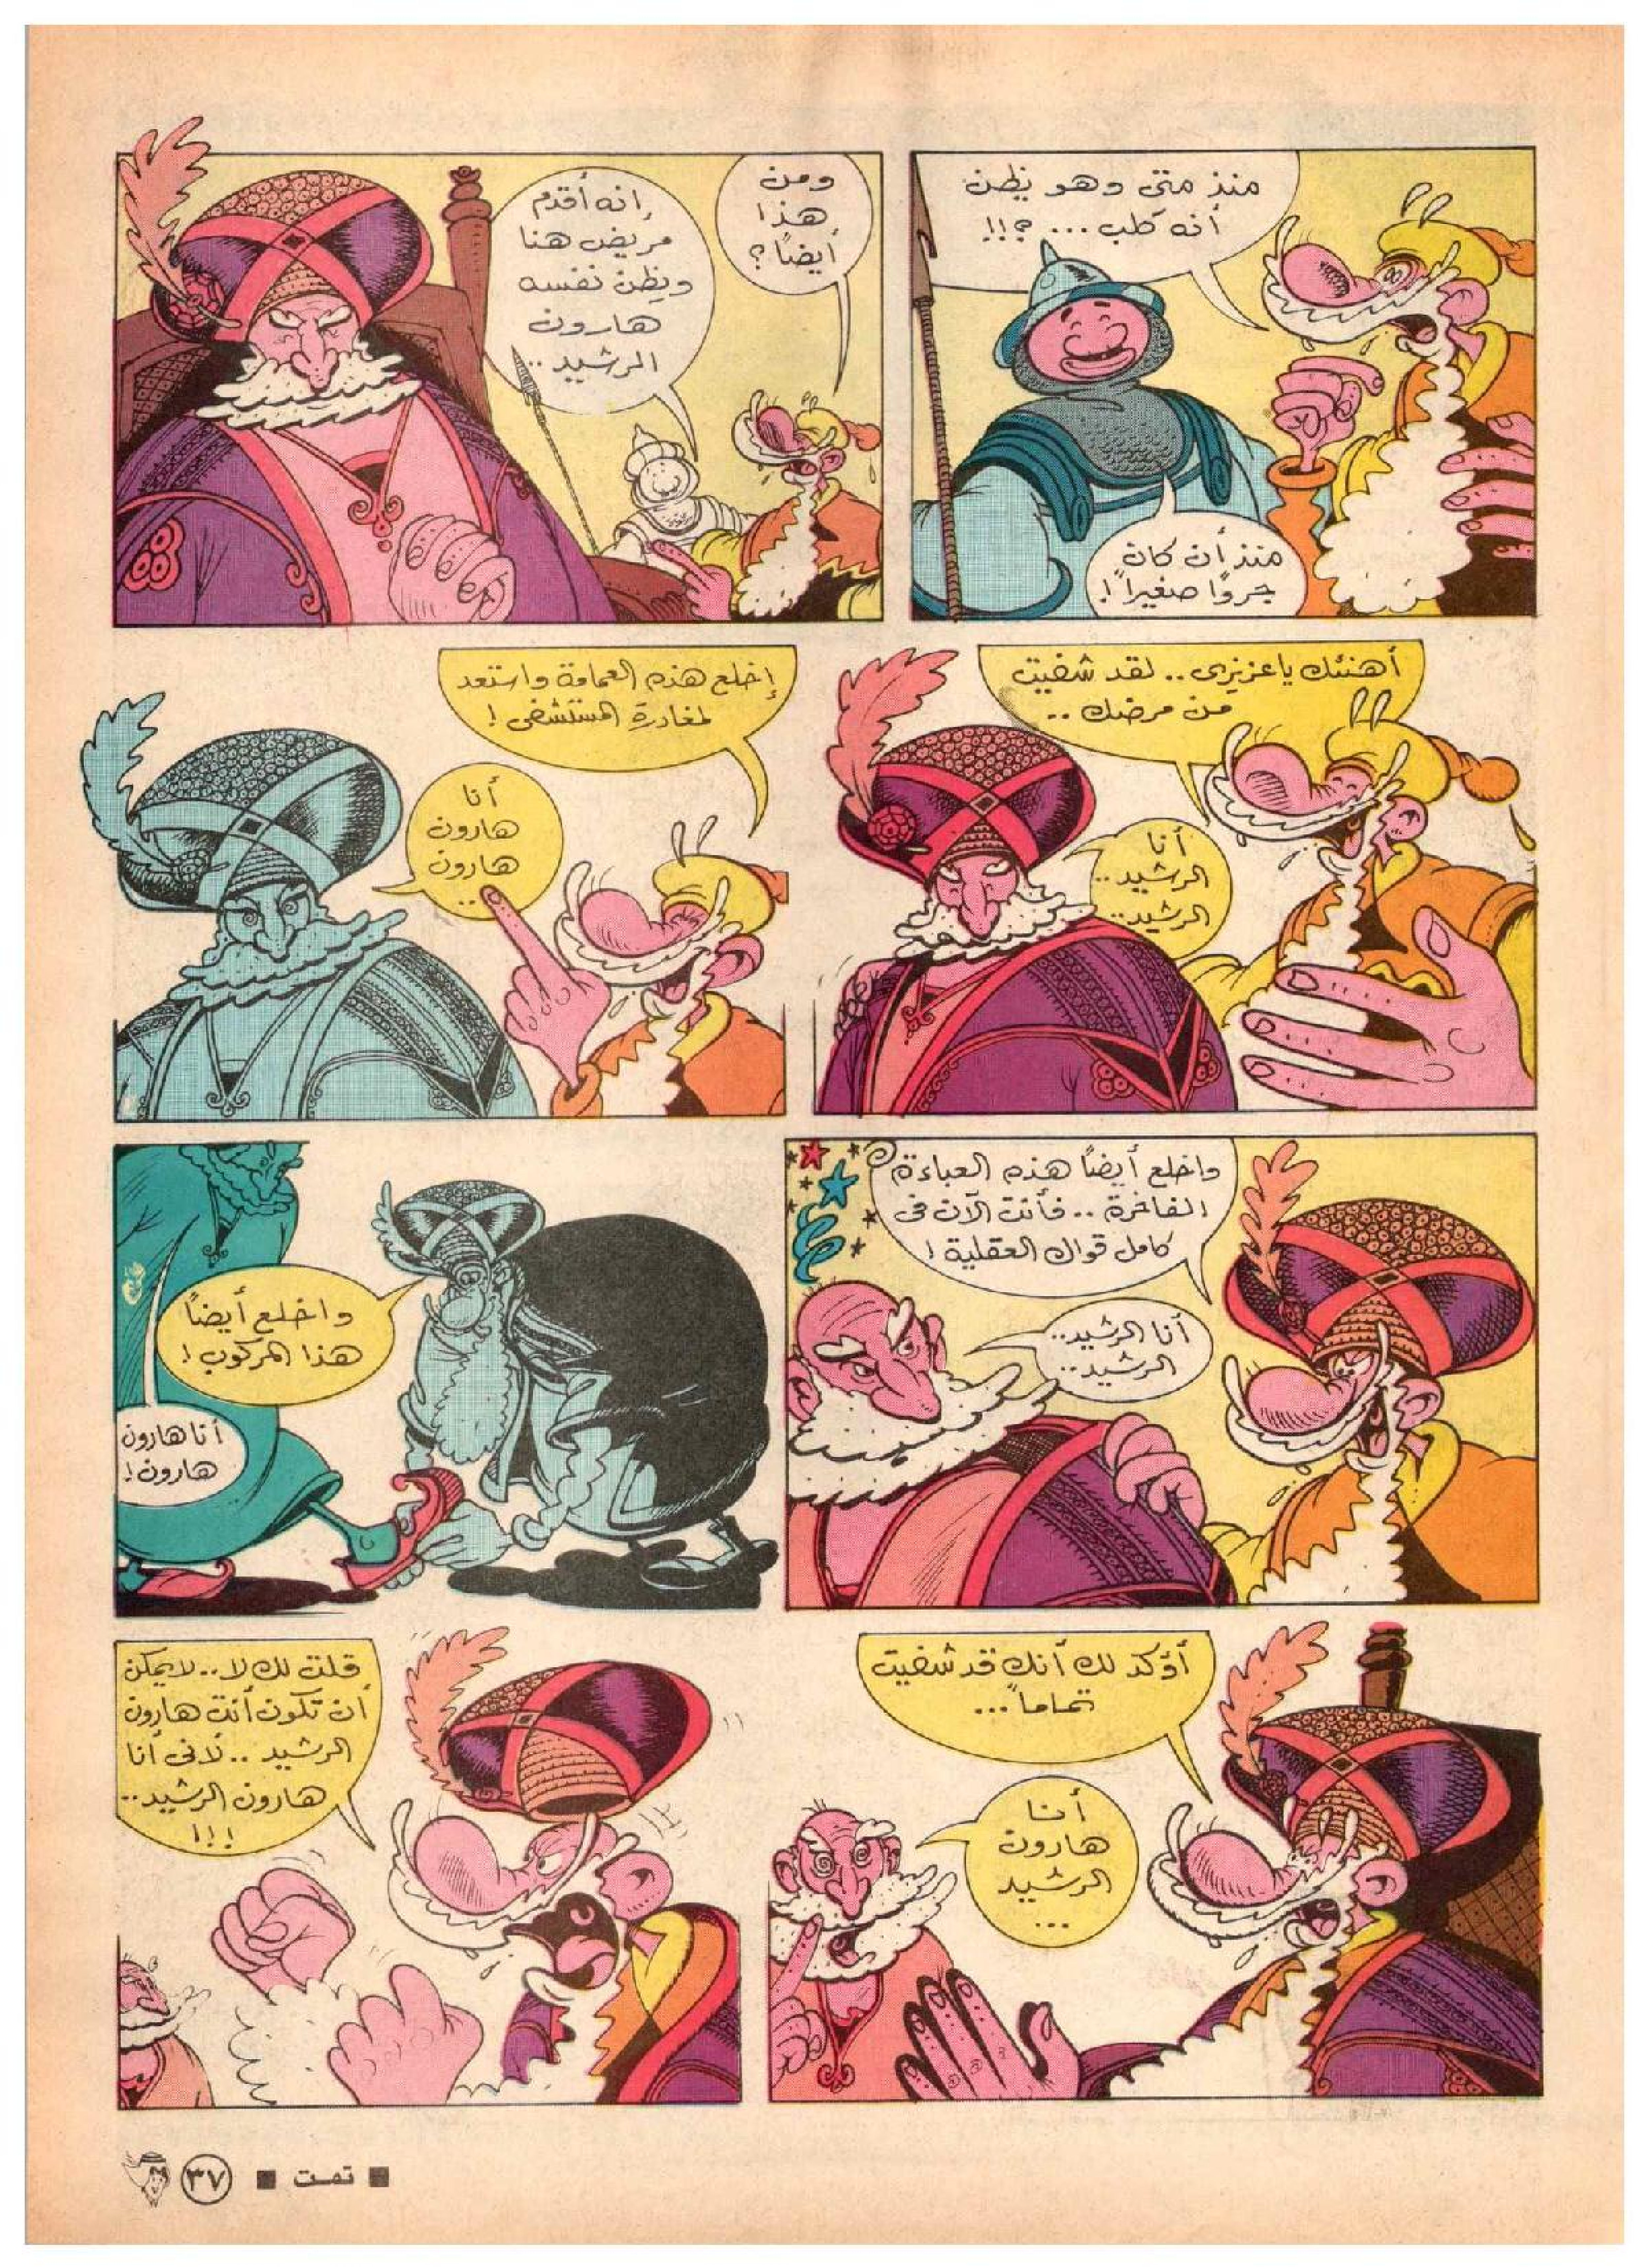 منذ متى وهو يظن
أنه كلب ... ؟!!
منذ أن كان
جروًا صغيراً !
ومن
هذا
أيضاً ؟
إنه أقدم
مريض هنا
ويظن نفسه
هارون
الرشيد ..
أهنئك ياعزيزى .. لقد شفيت
من مرضك ..
أنا
الرشيد ..
الرشيد ..
إخلع هذه العمامة واستعد
لمغادرة المستشفى !
أنا
هارون
هارون
..
واخلع أيضاً هذه العباءة
الفاخرة .. فأنت الآن فى
كامل قواك العقلية !
أنا الرشيد ..
الرشيد ..
واخلع أيضاً
هذا المركوب !
أنا هارون
هارون !
أؤكد لك أنك قد شفيت
تماماً ...
أنا
هارون
الرشيد
...
قلت لك لا .. لايمكن
أن تكون أنت هارون
الرشيد .. لأنى أنا
هارون الرشيد ..
!!!
■ تمت ■ ٣٧